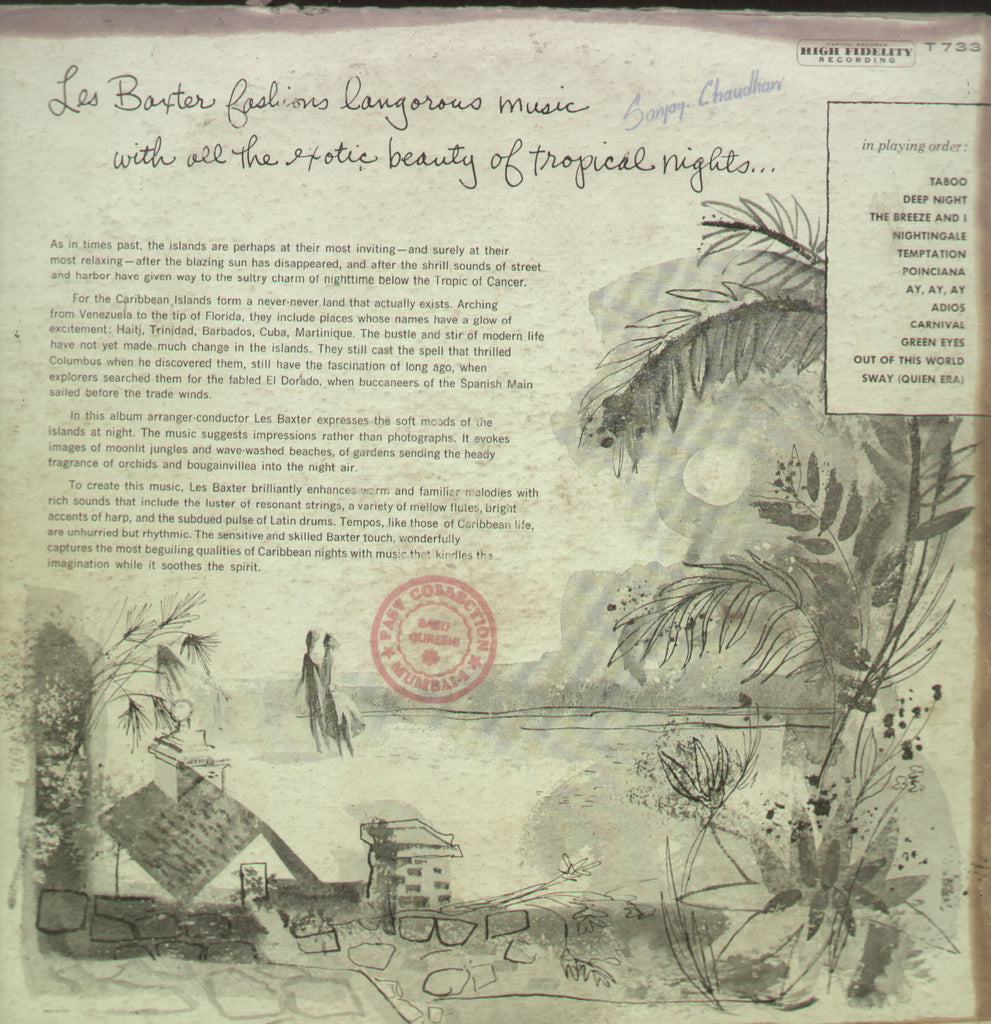 CAPITOL RECORDS
HIGH FIDELITY
RECORDING
T 733
Les Baxter fashions langorous music
with all the exotic beauty of tropical nights...
Sanjay. Chaudhari
in playing order:
TABOO
DEEP NIGHT
THE BREEZE AND I
NIGHTINGALE
TEMPTATION
POINCIANA
AY, AY, AY
ADIOS
CARNIVAL
GREEN EYES
OUT OF THIS WORLD
SWAY (QUIEN ERA)
As in times past, the islands are perhaps at their most inviting—and surely at their
most relaxing—after the blazing sun has disappeared, and after the shrill sounds of street
and harbor have given way to the sultry charm of nighttime below the Tropic of Cancer.
For the Caribbean Islands form a never-never land that actually exists. Arching
from Venezuela to the tip of Florida, they include places whose names have a glow of
excitement: Haiti, Trinidad, Barbados, Cuba, Martinique. The bustle and stir of modern life
have not yet made much change in the islands. They still cast the spell that thrilled
Columbus when he discovered them, still have the fascination of long ago, when
explorers searched them for the fabled El Dorado, when buccaneers of the Spanish Main
sailed before the trade winds.
In this album arranger-conductor Les Baxter expresses the soft moods of the
islands at night. The music suggests impressions rather than photographs. It evokes
images of moonlit jungles and wave-washed beaches, of gardens sending the heady
fragrance of orchids and bougainvillea into the night air.
To create this music, Les Baxter brilliantly enhances warm and familiar melodies with
rich sounds that include the luster of resonant strings, a variety of mellow flutes, bright
accents of harp, and the subdued pulse of Latin drums. Tempos, like those of Caribbean life,
are unhurried but rhythmic. The sensitive and skilled Baxter touch, wonderfully
captures the most beguiling qualities of Caribbean nights with music that kindles the
imagination while it soothes the spirit.
PAST COLLECTION
BABU
QURESHI
MUMBAI-8